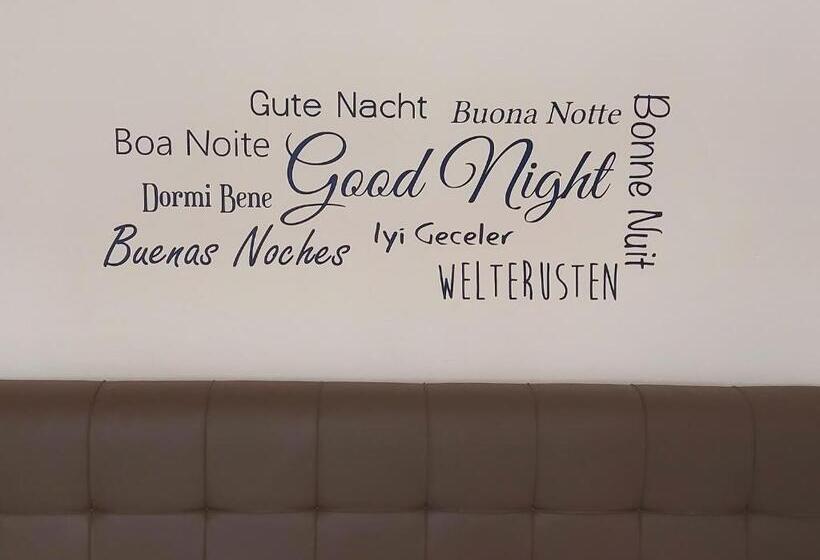 Gute Nacht
Buona Notte
Bonne Nuit
Boa Noite
Good Night
Dormi Bene
Buenas Noches
Iyi Geceler
WELTERUSTEN